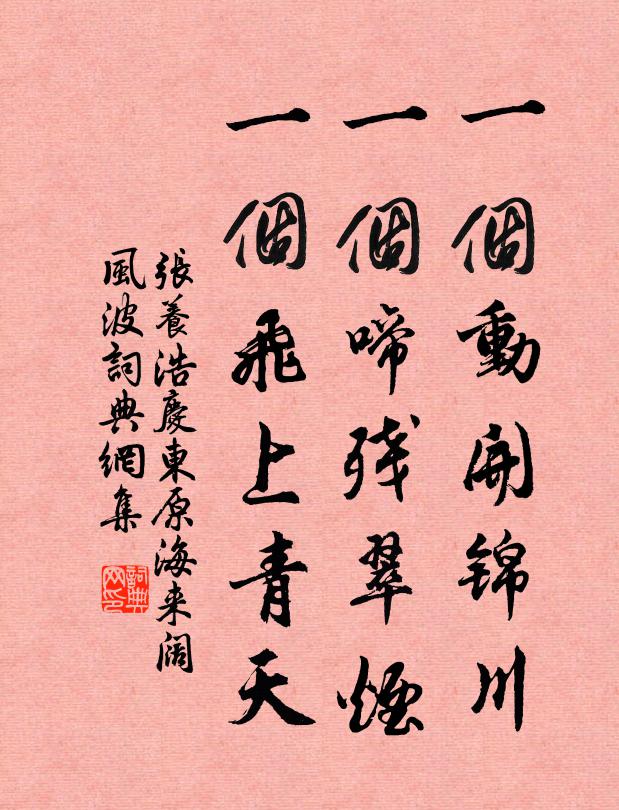 一個動開錦川
一個啼残翠煙
一個飛上青天
張養浩慶東原海来闊
風波詞典網集
詞典
网印